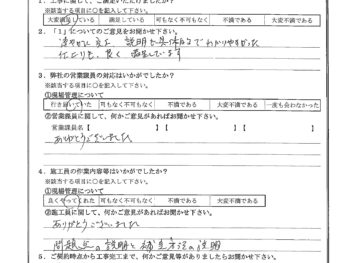 1. 工事に関して、ご満足いただけましたか?
※該当する項目に○を記入して下さい。
大変満足している 満足している 可も不可も不可もなく 不満である 大変不満である
2.「1」についてのご意見をお聞かせ下さい。
説明も具体的でわかりやすかった
仕上りも、良く 満足しています
3. 弊社の営業課員の対応はいかがでしたか?
※該当する項目に○を記入して下さい。
①現場管理について
行き届いていた 可も不可も不可もなく 不満である 大変不満である 一度も会わなかった
②営業課員に関して、何かご意見があればお聞かせ下さい。
営業課員名【 】 【 】
ありがとうございました
4. 施工員の作業内容等はいかがでしたか?
※該当する項目に○を記入して下さい。
①現場管理について
良くやってくれた 可も不可も不可もなく 不満である 大変不満である
②施工員に関して、何かご意見があればお聞かせ下さい。
ありがとうございました
問題点の説明と補足方法の説明
5. ご契約時点から工事完工まで、何かご意見等がありましたらお聞かせ下さい。